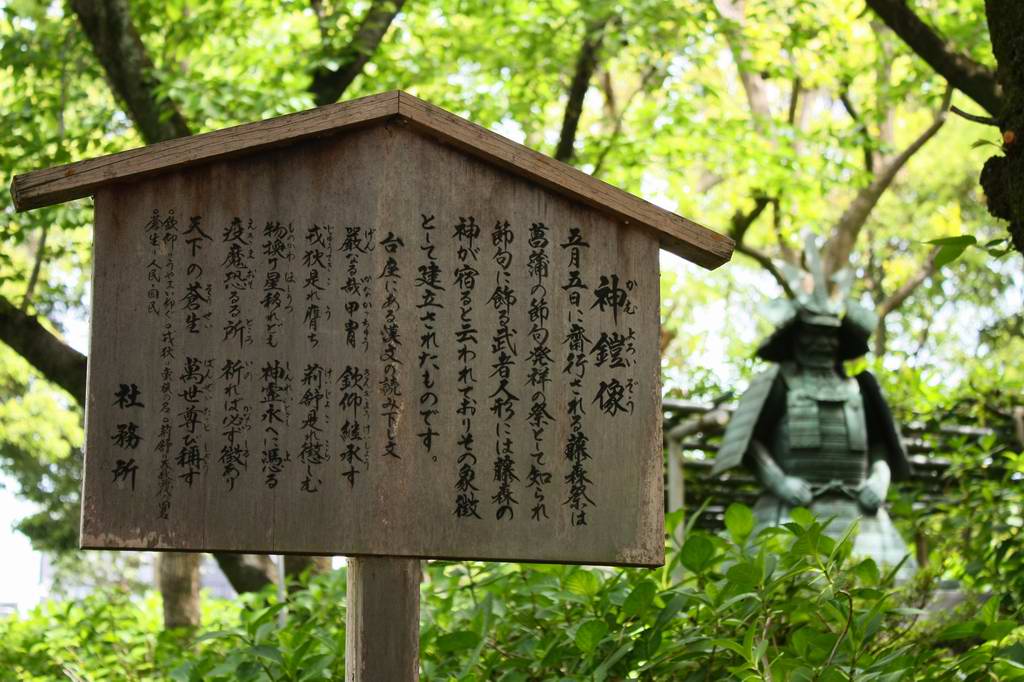 神鎧像
五月五日に齋行される藤森祭は
菖蒲の節句発祥の祭として知られ
節句に飾る武者人形には藤森の
神が宿ると云われておりその象徴
として建立されたものです。
台座にある漢文の読み下し文
嚴なる哉甲冑 欽仰継承す
戎狄是れ膺ち 荊舒是れ懲しむ
物換り星移れども 神霊永へに憑る
疫魔恐るる所 祈れば必ず徴あり
天下の蒼生 萬世尊び稱す
蒼生 人民・国民
社務所